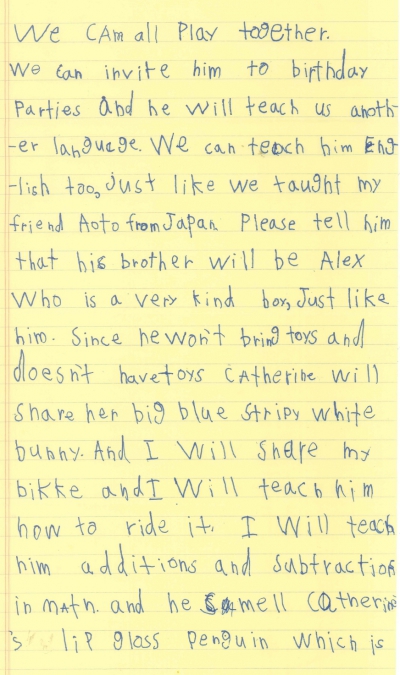 We CAm all Play together.
We can invite him to birthday
Parties and he will teach us anoth-
-er language. We can teach him Eng
-lish too, Just like we taught my
friend Aoto from Japan. Please tell him
that his brother will be Alex
Who is a very kind boy, Just like
him. Since he won't bring toys and
doesn't have toys CAtherine will
share her big blue stripy white
bunny. And I Will share my
bikke and I Will teach him
how to ride it. I Will teach
him additions and subtraction
in mAth. and he smell CAtherine
's lip gloss Penguin which is